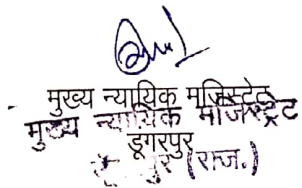 मुख्य न्यायिक मजिस्ट्रेट
मुख्य न्यायिक मजिस्ट्रेट
डूंगरपुर
पुर (राज.)